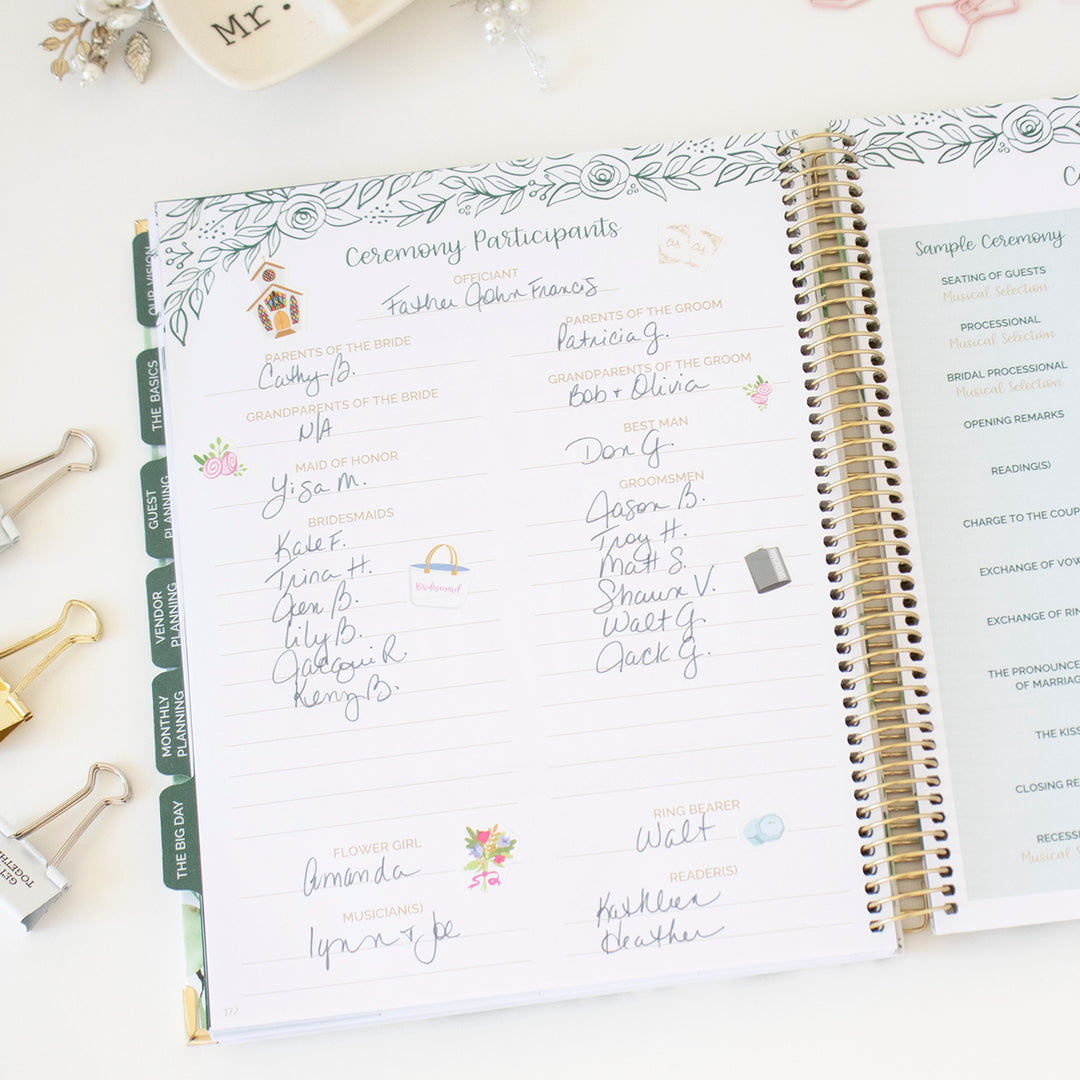 Mr.
Ceremony Participants
OFFICIANT
Father John Francis
PARENTS OF THE BRIDE
Cathy B.
GRANDPARENTS OF THE BRIDE
N/A
MAID OF HONOR
Lisa M.
BRIDESMAIDS
Kate F.
Trina H.
Jen B.
Lily B.
Jacqui R.
Kenzy B.
Bridesmaid
FLOWER GIRL
Amanda
MUSICIAN(S)
Lynn + Joe
PARENTS OF THE GROOM
Patricia G.
GRANDPARENTS OF THE GROOM
Bob + Olivia
BEST MAN
Don G.
GROOMSMEN
Jason B.
Troy H.
Matt S.
Shawn V.
Walt G.
Jack G.
RING BEARER
Walt
READER(S)
Kathleen
Heather
172
OUR VISION
THE BASICS
GUEST
PLANNING
VENDOR
PLANNING
MONTHLY
PLANNING
THE BIG DAY
Sample Ceremony
SEATING OF GUESTS
Musical Selection
PROCESSIONAL
Musical Selection
BRIDAL PROCESSIONAL
Musical Selection
OPENING REMARKS
READING(S)
CHARGE TO THE COUP
EXCHANGE OF VOW
EXCHANGE OF RIN
THE PRONOUNCE
OF MARRIAG
THE KISS
CLOSING RE
RECESSI
Musical S
GET
TOGETHE